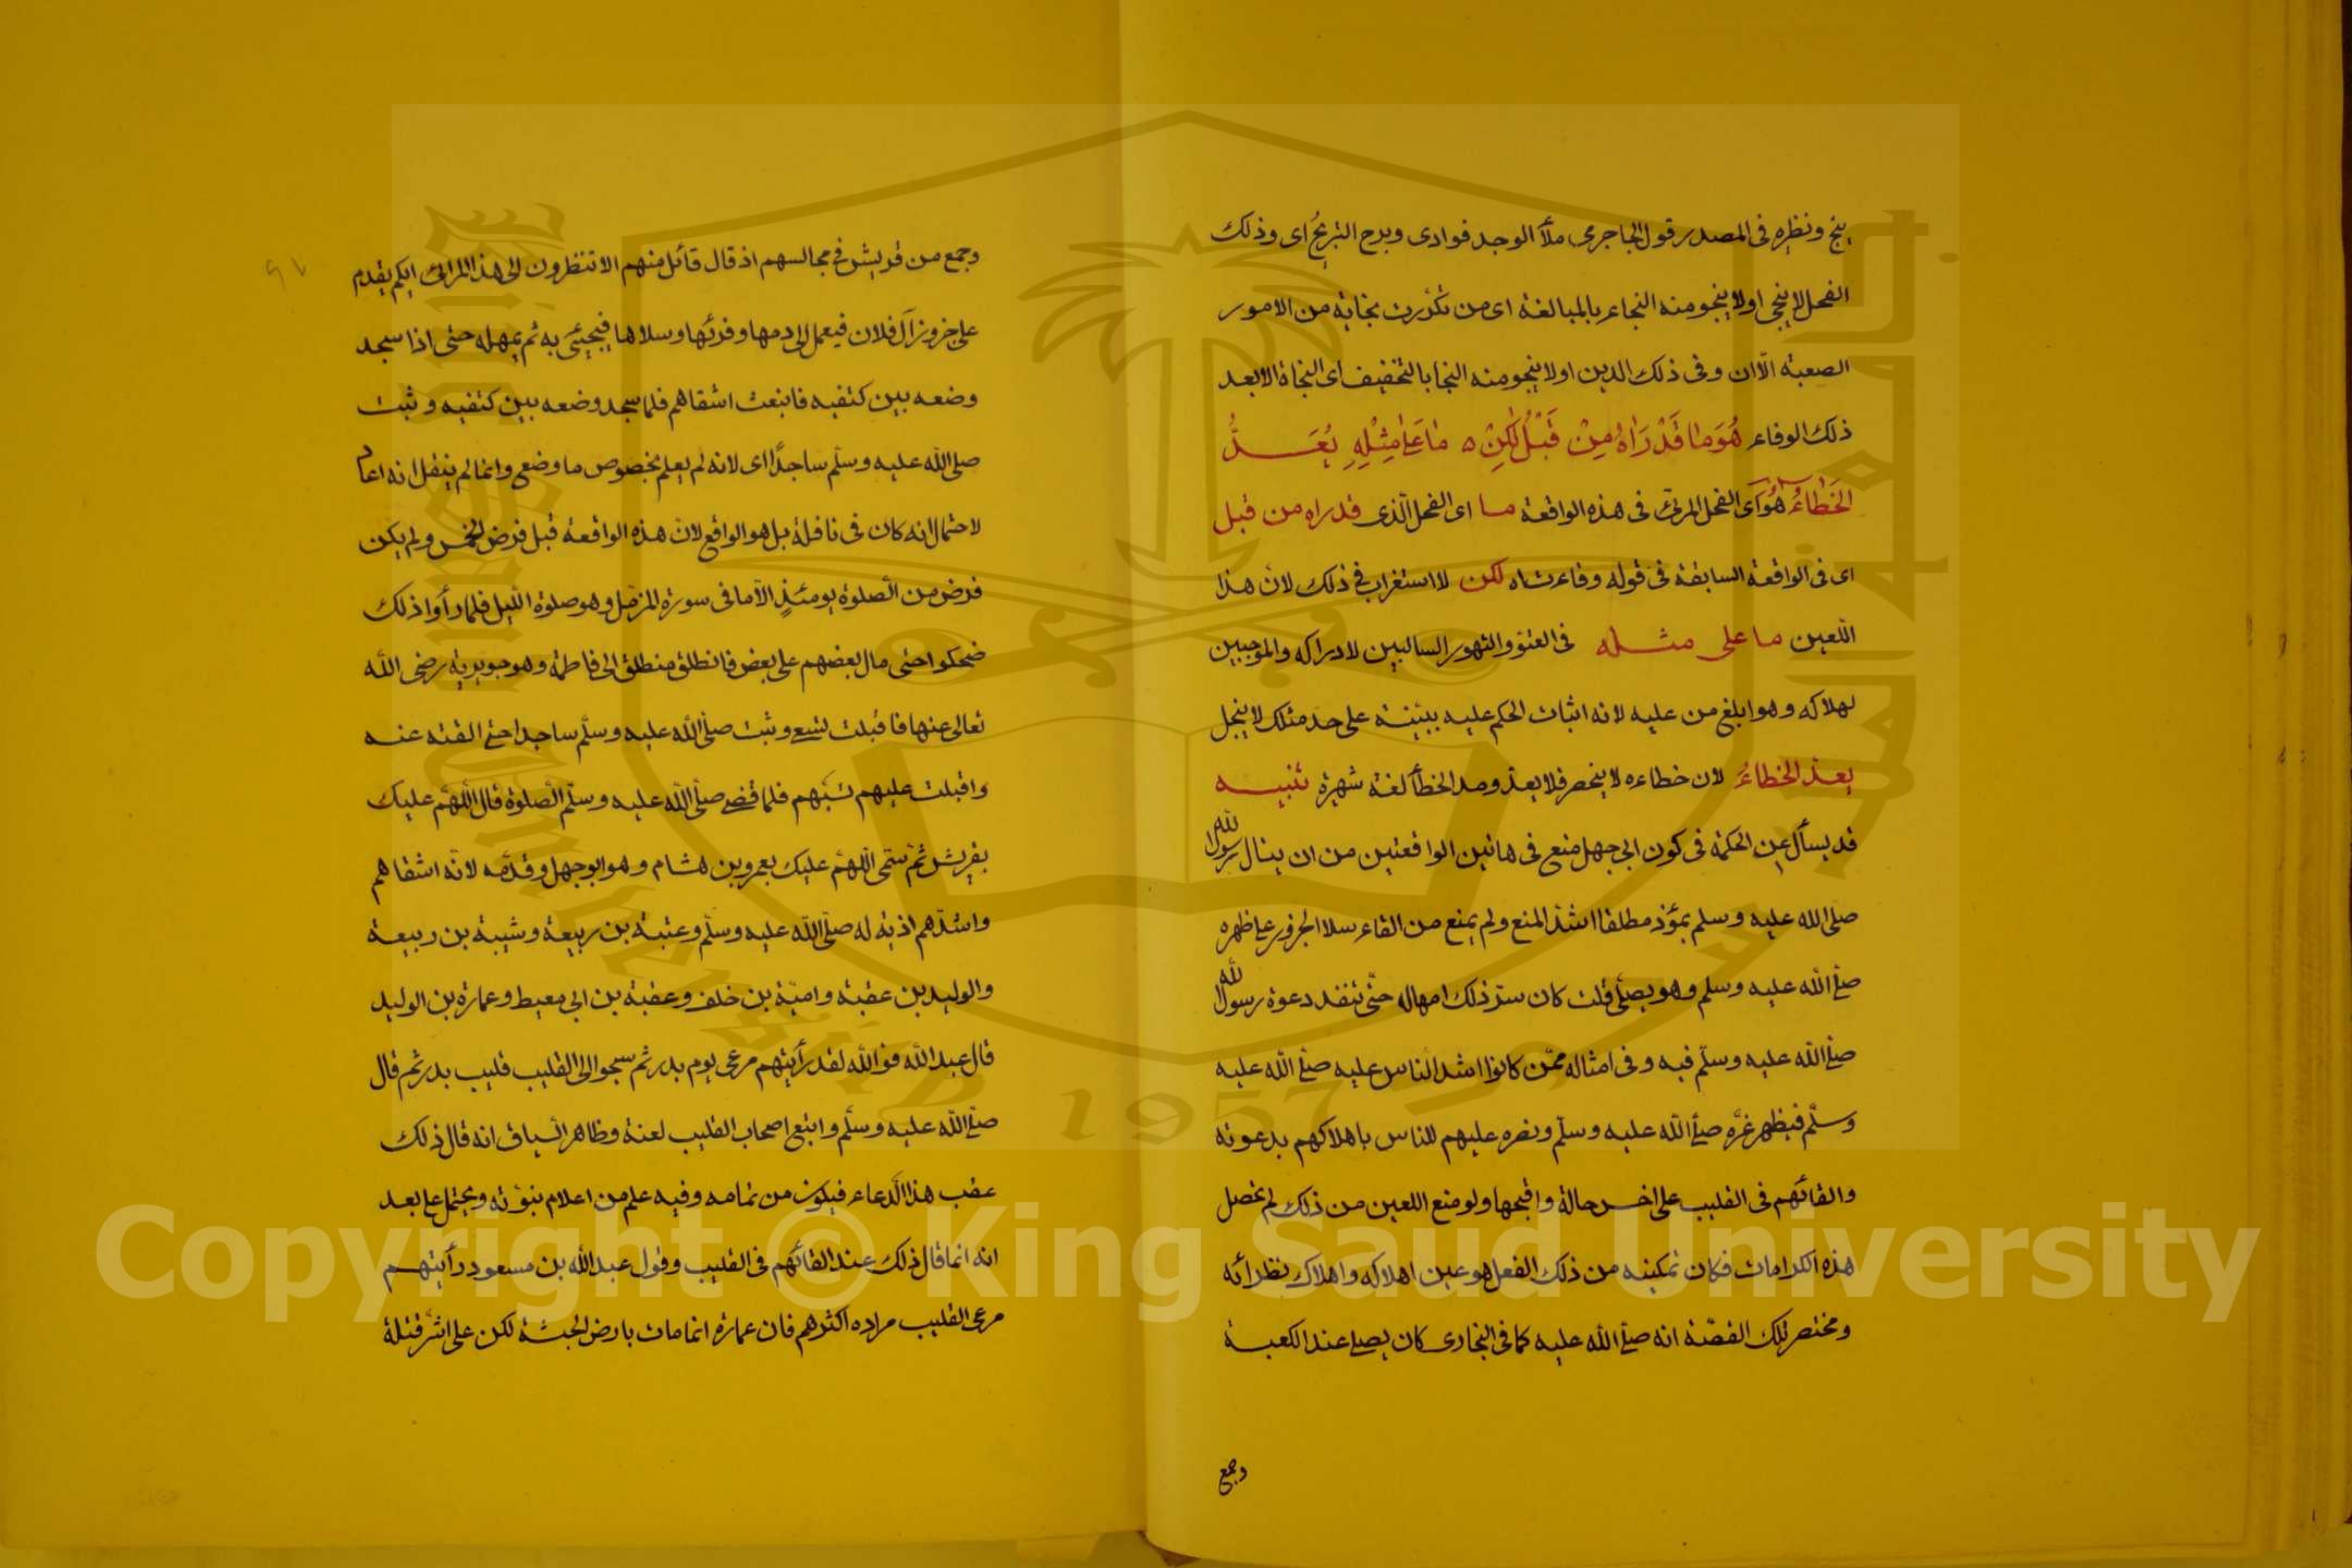 ينج ونظيره في المصدر قول الحاجري ملأ الوجد فوادي وبرح التبريح اي وذلك
الفحل لا ينجي او لا ينجو منه النجاء بالمبالغة اي من تكررت نجايته من الامور
الصعبة الا ان وفي ذلك الدين او لا ينجو منه النجا بالتخفيف اي النجاة الا بعد
ذلك الوفاء هُوَ مَا قَدْ رَاٰهُ مِنْ قَبْلُ لٰكِنْ ه مَا عَلٰى مِثْلِهِ يُعَدُّ
الخَطَاءُ هو اي الفحل المرئي في هذه الواقعة ما اي الفحل الذي قد راه من قبل
اي في الواقعة السابقة في قوله وفاء شاه لكن لا استغراب في ذلك لان هذا
اللعين ما على مثله في العتو والتهور السالبين لادراكه والموجبين
لهلاكه وهو ابلغ من عليه لانه اثبات الحكم عليه ببينة على حد مثلك لا ينجل
يعد الخطاءُ لان خطاءه لا ينحصر فلا يعد ومد الخطأ لغة شهيرة تنبيه
قد يسأل عن الحكمة في كون ابي جهل منع في هاتين الواقعتين من ان ينال رسول الله
صلى الله عليه وسلم بمؤذ مطلقا اشد المنع ولم يمنع من القاء سلا الجزور على ظهره
صلى الله عليه وسلم وهو يصلي قلت كان ستر ذلك امهاله حتى تنفد دعوة رسول الله
صلى الله عليه وسلم فيه وفي امثاله ممن كانوا اشد الناس عليه صلى الله عليه
وسلم فيظهر عزه صلى الله عليه وسلم ونصره عليهم للناس باهلاكهم بدعوته
والقائهم في القليب على اخس حالة واقبحها ولو منع اللعين من ذلك لم تحصل
هذه الكرامات فكان تمكينه من ذلك الفعل هو عين اهلاكه واهلاك نظرائه
ومختصر تلك القصة انه صلى الله عليه كما في البخاري كان يصلي عند الكعبة
وجمع
وجمع من قريش في مجالسهم اذ قال قائل منهم الا تنظرون الى هذا المرائي ايكم يقدم
على جزور آل فلان فيعمل الى دمها وفرثها وسلاها فيجيئ به ثم يمهله حتى اذا سجد
وضعه بين كتفيه فانبعث اشقاهم فلما سجد وضعه بين كتفيه وثبت
صلى الله عليه وسلم ساجدًا اي لانه لم يعلم بخصوص ما وضع وانما لم ينقل انه اعاد
لاحتمال انه كان في نافلة بل هو الواقع لان هذه الواقعة قبل فرض الخمس ولم يكن
فرض من الصلوة يومئذٍ الا ما في سورة المزمل وهو صلوة الليل فلما رأوا ذلك
ضحكوا حتى مال بعضهم على بعض فانطلق منطلق الى فاطمة وهو جويرية رضي الله
تعالى عنها فاقبلت تسع وثبت صلى الله عليه وسلم ساجدا حتى القته عنه
واقبلت عليهم تسبهم فلما قضى صلى الله عليه وسلم الصلوة قال اللهم عليك
بقريش ثم سمى اللهم عليك بعمرو بن هشام وهو ابو جهل وقدمه لانه اشقاهم
واشدهم اذية له صلى الله عليه وسلم وعتبة بن ربيعة وشيبة بن ربيعة
والوليد بن عقبة وامية بن خلف وعقبة بن ابي معيط وعمارة بن الوليد
قال عبد الله فوالله لقد رأيتهم مرعى يوم بدر ثم سحبوا الى القليب قليب بدر ثم قال
صلى الله عليه وسلم واتبع اصحاب القليب لعنة وظاهر السياق انه قال ذلك
عقب هذا الدعاء فيكون من تمامه وفيه علم من اعلام نبوته ويحتمل على بعد
انه انما قال ذلك عند القائهم في القليب وقول عبد الله بن مسعود رأيتهم
مرعى القليب مراده اكثرهم فان عمارة انما مات بارض الحبشة لكن على اشر قتلة
Copyright © King Saud University
1957